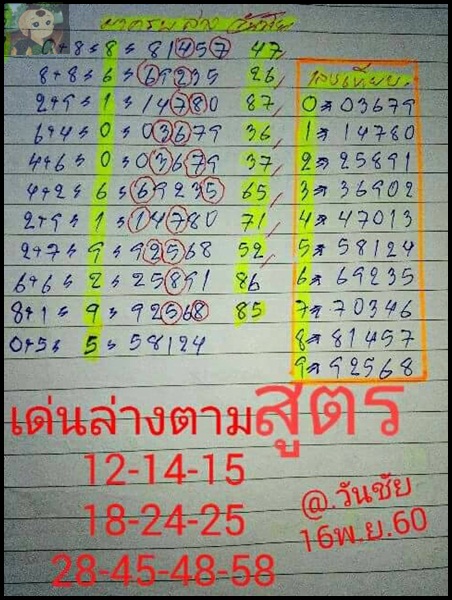 บาดรบ ล่าง วันชัย
0+8=8=81457 47
8+8=6=69235 26
2+9=1=14780 87
6+4=0=03679 36
4+6=0=03679 37
4+2=6=69235 65
2+9=1=14780 71
2+7=9=92568 52
6+6=2=25891 86
8+1=9=92568 85
0+5=5=58124
0=03679
1=14780
2=25891
3=36902
4=47013
5=58124
6=69235
7=70346
8=81457
9=92568
เด่นล่างตามสูตร
12-14-15
18-24-25
28-45-48-58
@.วันชัย
16พ.ย.60